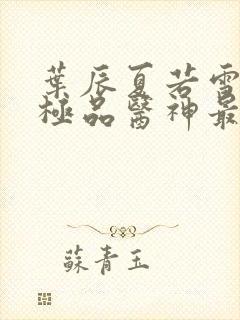 葉辰夏若雪
極品醫神最
蘇青玉